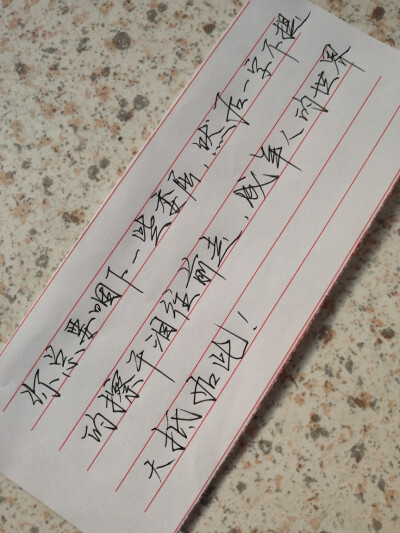 你总要咽下一些委屈，然后一字不提
的擦干泪往前走，成年人的世界
大抵如此！